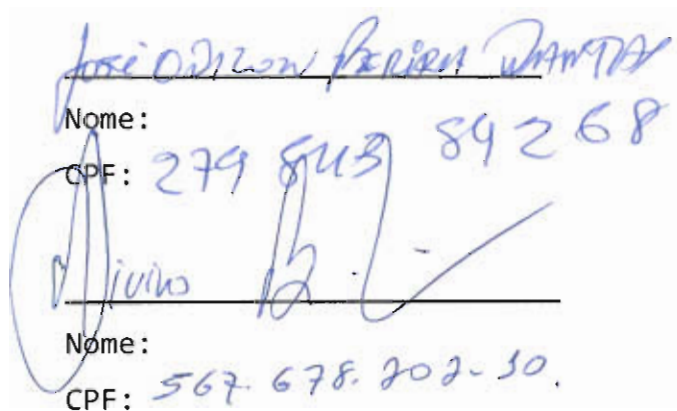 José Odizon Pereira Dantas
Nome:
CPF: 279 843 842 68
Divino
Nome:
CPF: 567.678.202-10.